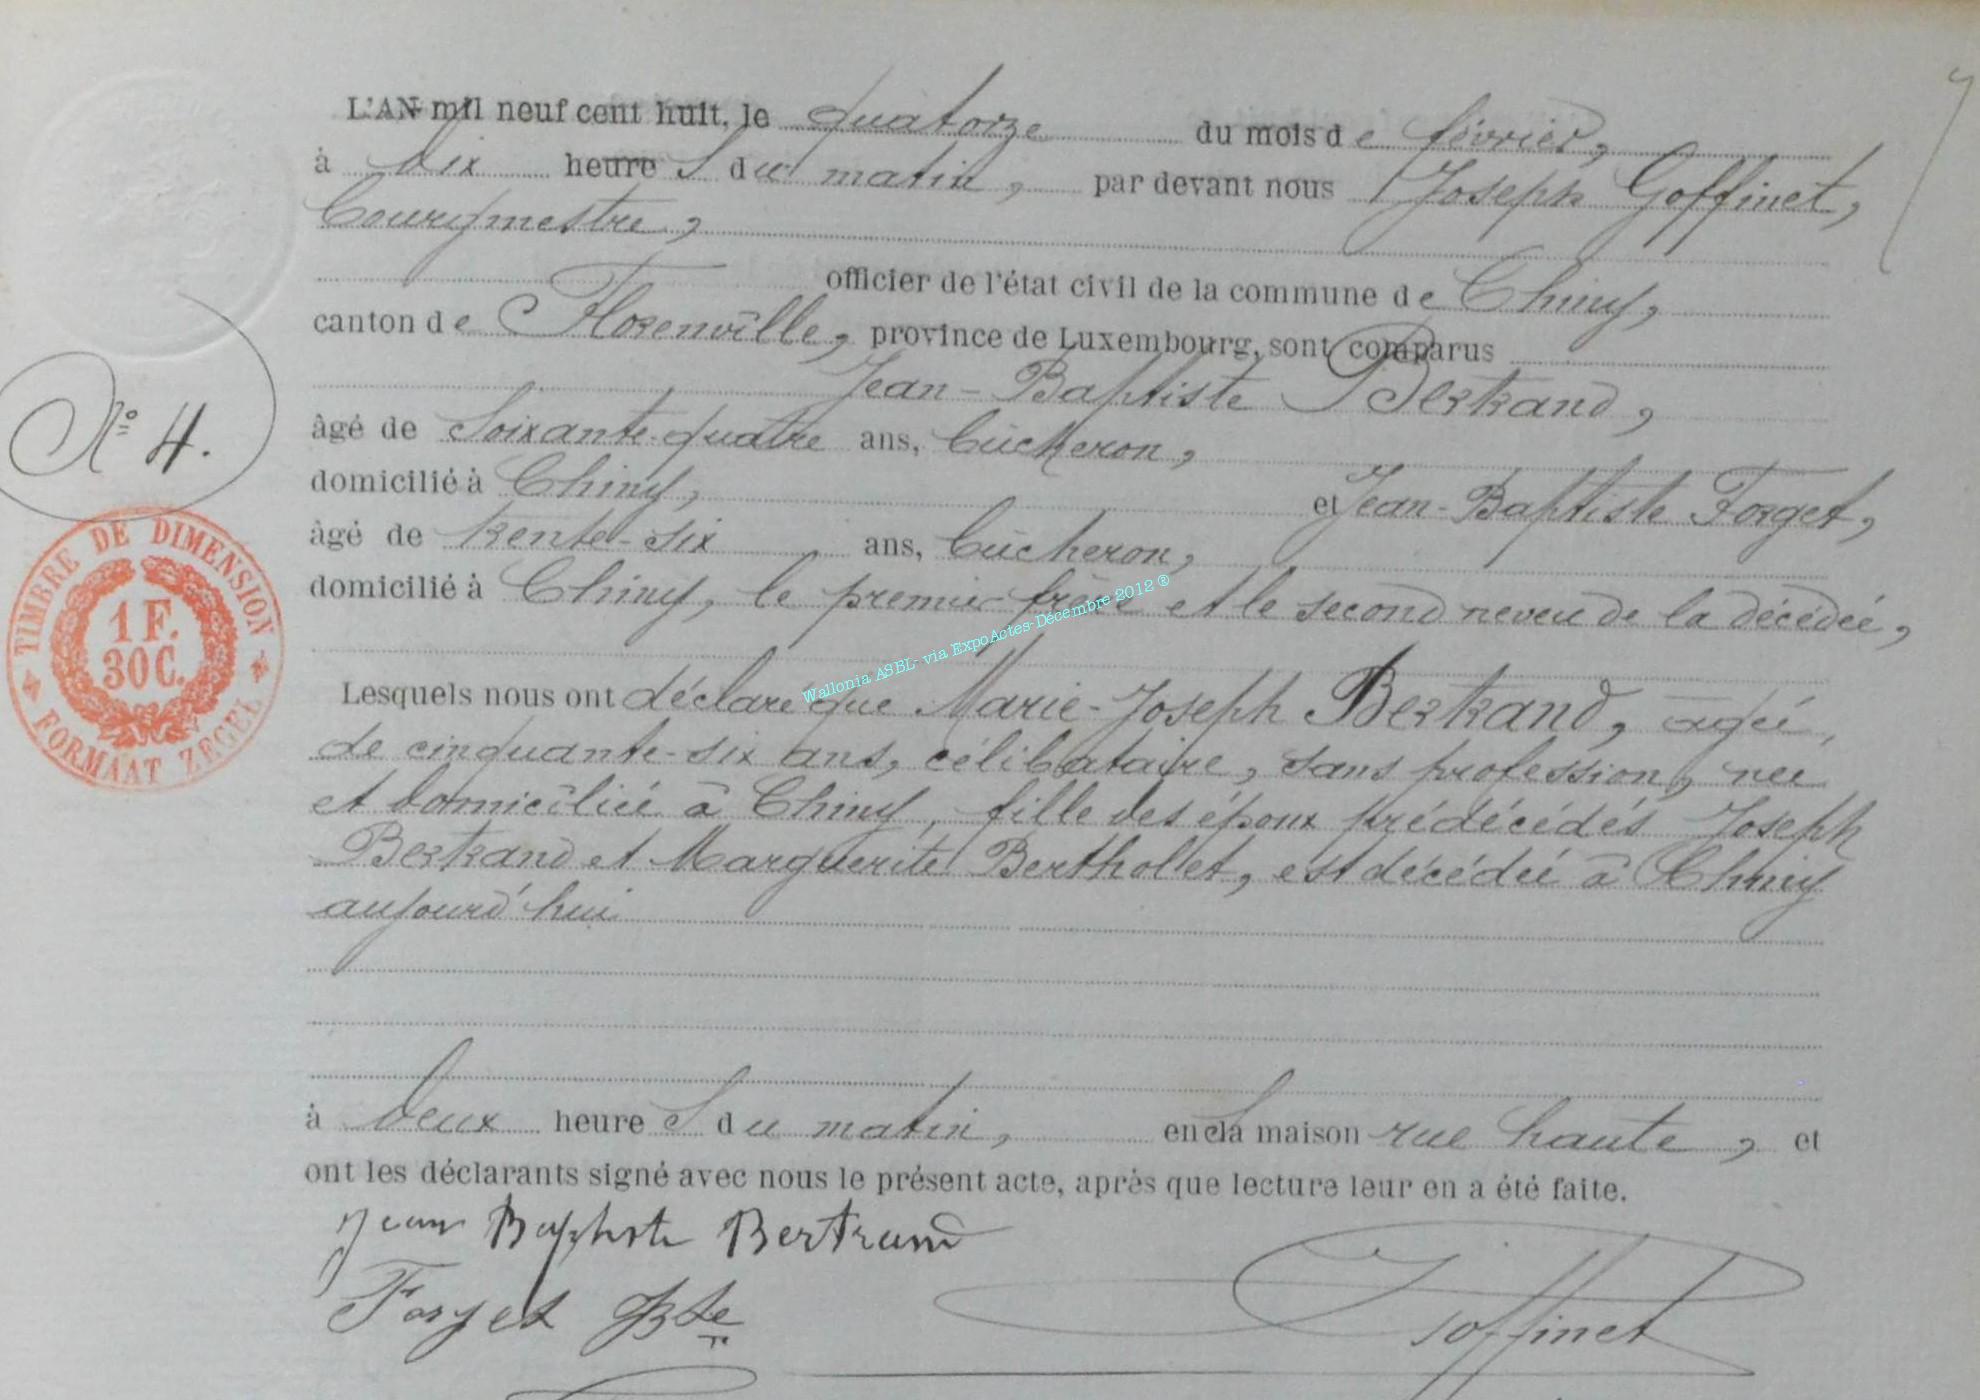 L'AN mil neuf cent huit, le quatorze du mois de février,
à dix heures du matin, par devant nous Joseph Goffinet,
bourgmestre,
officier de l'état civil de la commune de Chiny,
canton de Florenville, province de Luxembourg, sont comparus
Jean-Baptiste Bertrand,
âgé de soixante-quatre ans, bûcheron,
N° 4.
domicilié à Chiny, et Jean-Baptiste Forget,
âgé de trente-six ans, bûcheron,
domicilié à Chiny, le premier frère et le second neveu de la décédée,
Lesquels nous ont déclaré que Marie-Joseph Bertrand, agée,
de cinquante-six ans, célibataire, sans profession, née
et domiciliée à Chiny, fille des époux prédécédés Joseph
Bertrand et Marguerite Berthollet, est décédée à Chiny
aujourd'hui
à deux heures du matin, en la maison rue haute, et
ont les déclarants signé avec nous le présent acte, après que lecture leur en a été faite.
Jean Baptiste Bertrand
Forget JBte
JGoffinet
TIMBRE DE DIMENSION
1 F.
30 C.
FORMAAT ZEGEL
Wallonia ASBL- via ExpoActes-Décembre 2012 ®